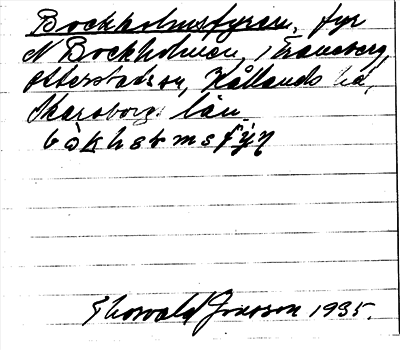 Bockholmsfyren, fyr
N Bockholmen, Traneberg,
Otterstads sn, Kållands hd,
Skaraborgs län.
Thorvald Jonsson 1935.